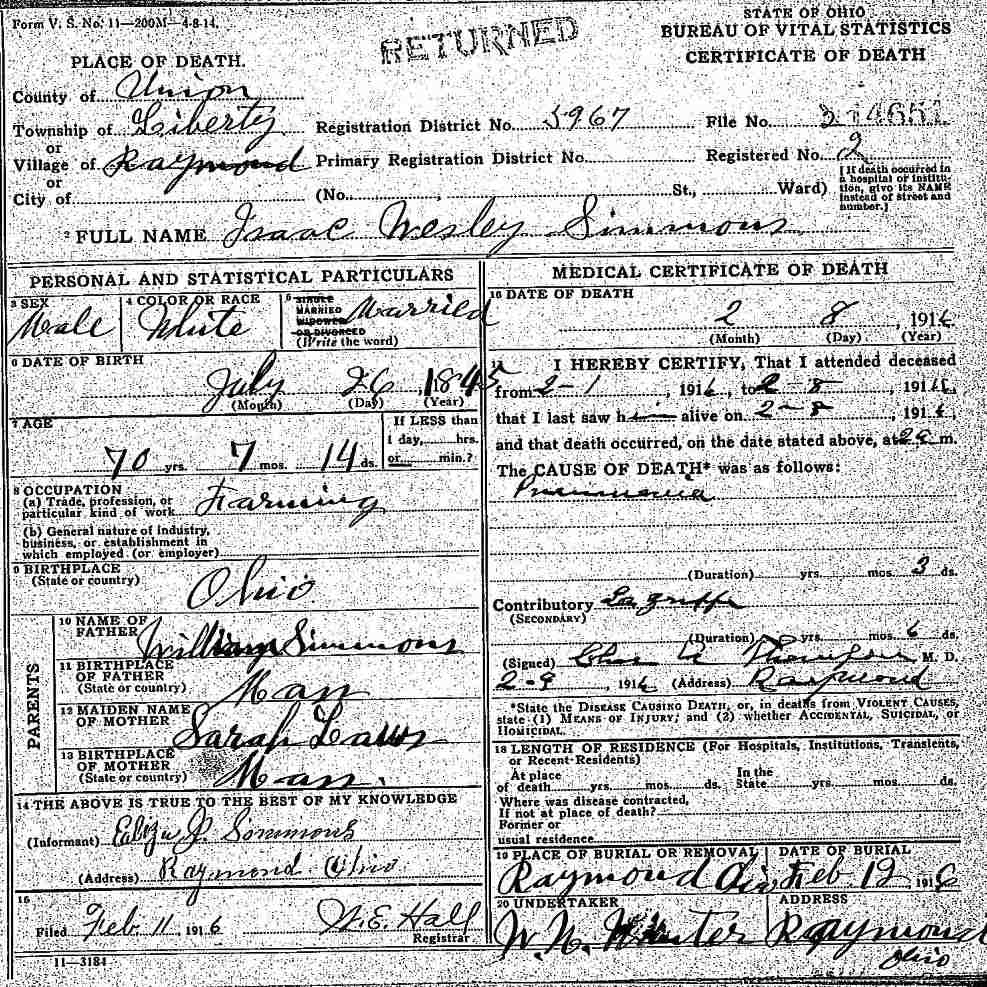 Form V. S. No. 11—200M—4-8-14.
RETURNED
STATE OF OHIO
BUREAU OF VITAL STATISTICS
CERTIFICATE OF DEATH
PLACE OF DEATH.
County of Union
Township of Liberty
or
Village of Raymond
or
City of
Registration District No. 5967
File No.
Primary Registration District No.
Registered No. 2
(No. , St., Ward)
[If death occurred in a hospital or institution, give its NAME instead of street and number.]
2 FULL NAME Isaac Wesley Simmons
PERSONAL AND STATISTICAL PARTICULARS
3 SEX
Male
4 COLOR OR RACE
White
5 SINGLE
MARRIED
WIDOWED
OR DIVORCED
(Write the word)
Married
6 DATE OF BIRTH
July 26, 1845
(Month) (Day) (Year)
7 AGE
70 yrs. 7 mos. 14 ds.
If LESS than
1 day, hrs.
or min.?
8 OCCUPATION
(a) Trade, profession, or
particular kind of work Farming
(b) General nature of industry,
business, or establishment in
which employed (or employer)
9 BIRTHPLACE
(State or country)
Ohio
PARENTS
10 NAME OF
FATHER William Simmons
11 BIRTHPLACE
OF FATHER
(State or country)
12 MAIDEN NAME
OF MOTHER Sarah Laws
13 BIRTHPLACE
OF MOTHER
(State or country)
14 THE ABOVE IS TRUE TO THE BEST OF MY KNOWLEDGE
(Informant) J. Simmons
(Address) Raymond Ohio
15
Filed Feb 11 1916 W. E. Hall
Registrar
11—3184
MEDICAL CERTIFICATE OF DEATH
16 DATE OF DEATH
2 8, 1916
(Month) (Day) (Year)
17 I HEREBY CERTIFY, That I attended deceased
from 2-1, 1916, to 2-8, 1916,
that I last saw him alive on 2-8, 1916,
and that death occurred, on the date stated above, at m.
The CAUSE OF DEATH* was as follows:
Pneumonia
(Duration) yrs. mos. 3 ds.
Contributory La grippe
(SECONDARY)
(Duration) yrs. mos. 6 ds.
(Signed) Chas Thompson M. D.
2-9, 1916 (Address) Raymond
*State the DISEASE CAUSING DEATH, or, in deaths from VIOLENT CAUSES,
state (1) MEANS OF INJURY; and (2) whether ACCIDENTAL, SUICIDAL, or
HOMICIDAL.
18 LENGTH OF RESIDENCE (For Hospitals, Institutions, Transients,
or Recent Residents)
At place
of death yrs. mos. ds.
In the
State yrs. mos. ds.
Where was disease contracted,
If not at place of death?
Former or
usual residence
19 PLACE OF BURIAL OR REMOVAL
Raymond
DATE OF BURIAL
Feb. 12 1916
20 UNDERTAKER
W. N.
ADDRESS
Raymond
Ohio